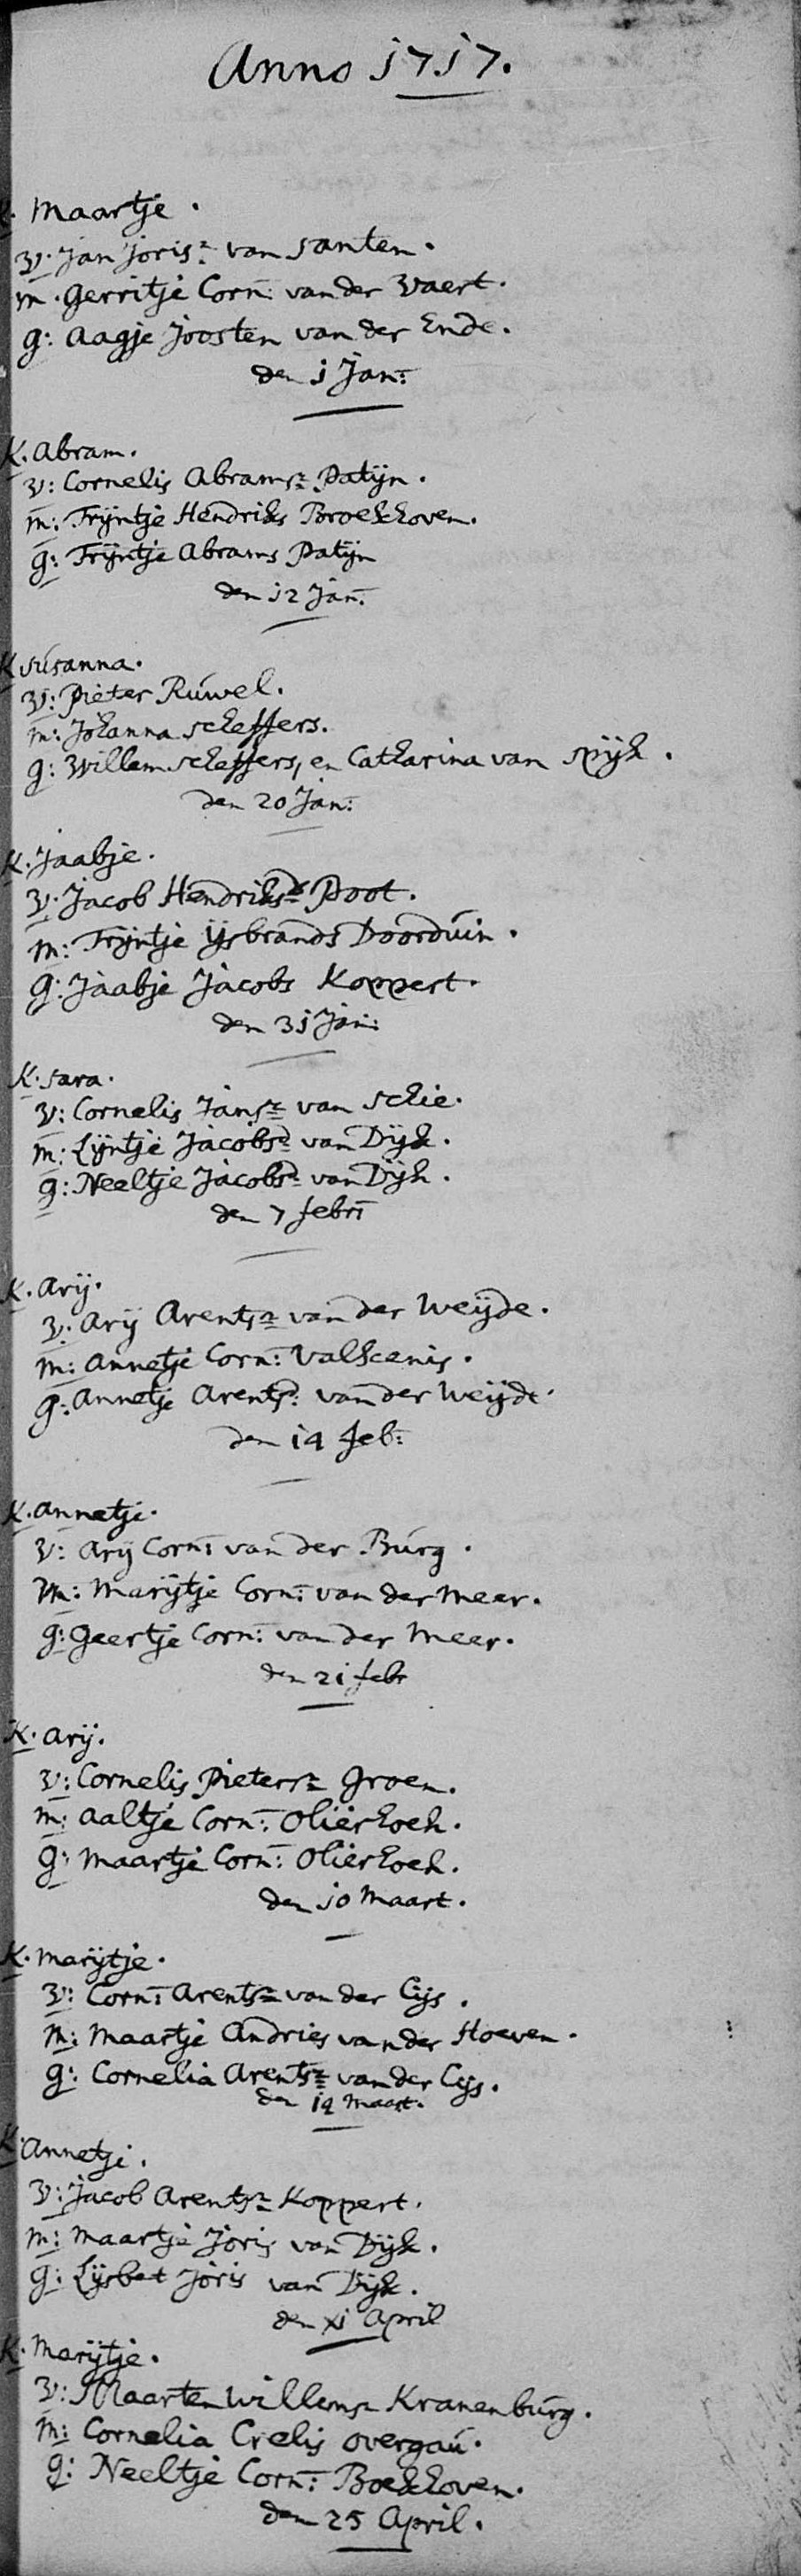 Anno 1717.
K. Maartje.
V. Jan Jorisz: van Santen.
M. Gerritje Corn: van der Vaert.
G: Aagje Joosten van der Ende.
den 1 Jan:
K. Abram.
V: Cornelis Abramsz Patijn.
M: Trijntje Hendriks Broekhoven.
G: Trijntje Abrams Patijn
den 12 Jan:
K Susanna.
V: Pieter Ruwel.
M: Johanna Scheffers.
G: Willem Scheffers, en Catharina van Spijk.
den 20 Jan:
K. Jaabje.
V. Jacob Hendriksz Poot.
M: Trijntje IJsbrands Doorduin.
G: Jaabje Jacobs Koppert.
den 31 Jan:
K. Sara.
V: Cornelis Jansz van Schie.
M: Lijntje Jacobsd van Dijk.
G: Neeltje Jacobsd van Dijk.
den 7 febr:
K. Arij.
V: Arij Arentsz van der Weijde.
M: Annetje Corn: Valkenis.
G: Annetje Arentsd: van der Weijde.
den 14 feb:
K. Annetje.
V: Arij Corn: van der Burg.
M: Marijtje Corn: van der Meer.
G: Geertje Corn: van der Meer.
den 21 febr
K. Arij.
V: Cornelis Pietersz Groen.
M: Aaltje Corn: Olierhoek.
G: Maartje Corn: Olierhoek.
den 10 Maart.
K. Marijtje.
V: Corn: Arentsz van der Lijs.
M: Maartje Andries van der Hoeven.
G: Cornelia Arentsz van der Lijs.
den 14 Maart.
K. Annetje.
V: Jacob Arentsz Koppert.
M: Maartje Joris van Dijk.
G: Lijsbet Joris van Dijk.
den xi April
K. Marijtje.
V: Maarten Willemsz Kranenburg.
M: Cornelia Crelis Overgau.
G: Neeltje Corn: Boekhoven.
den 25 April.